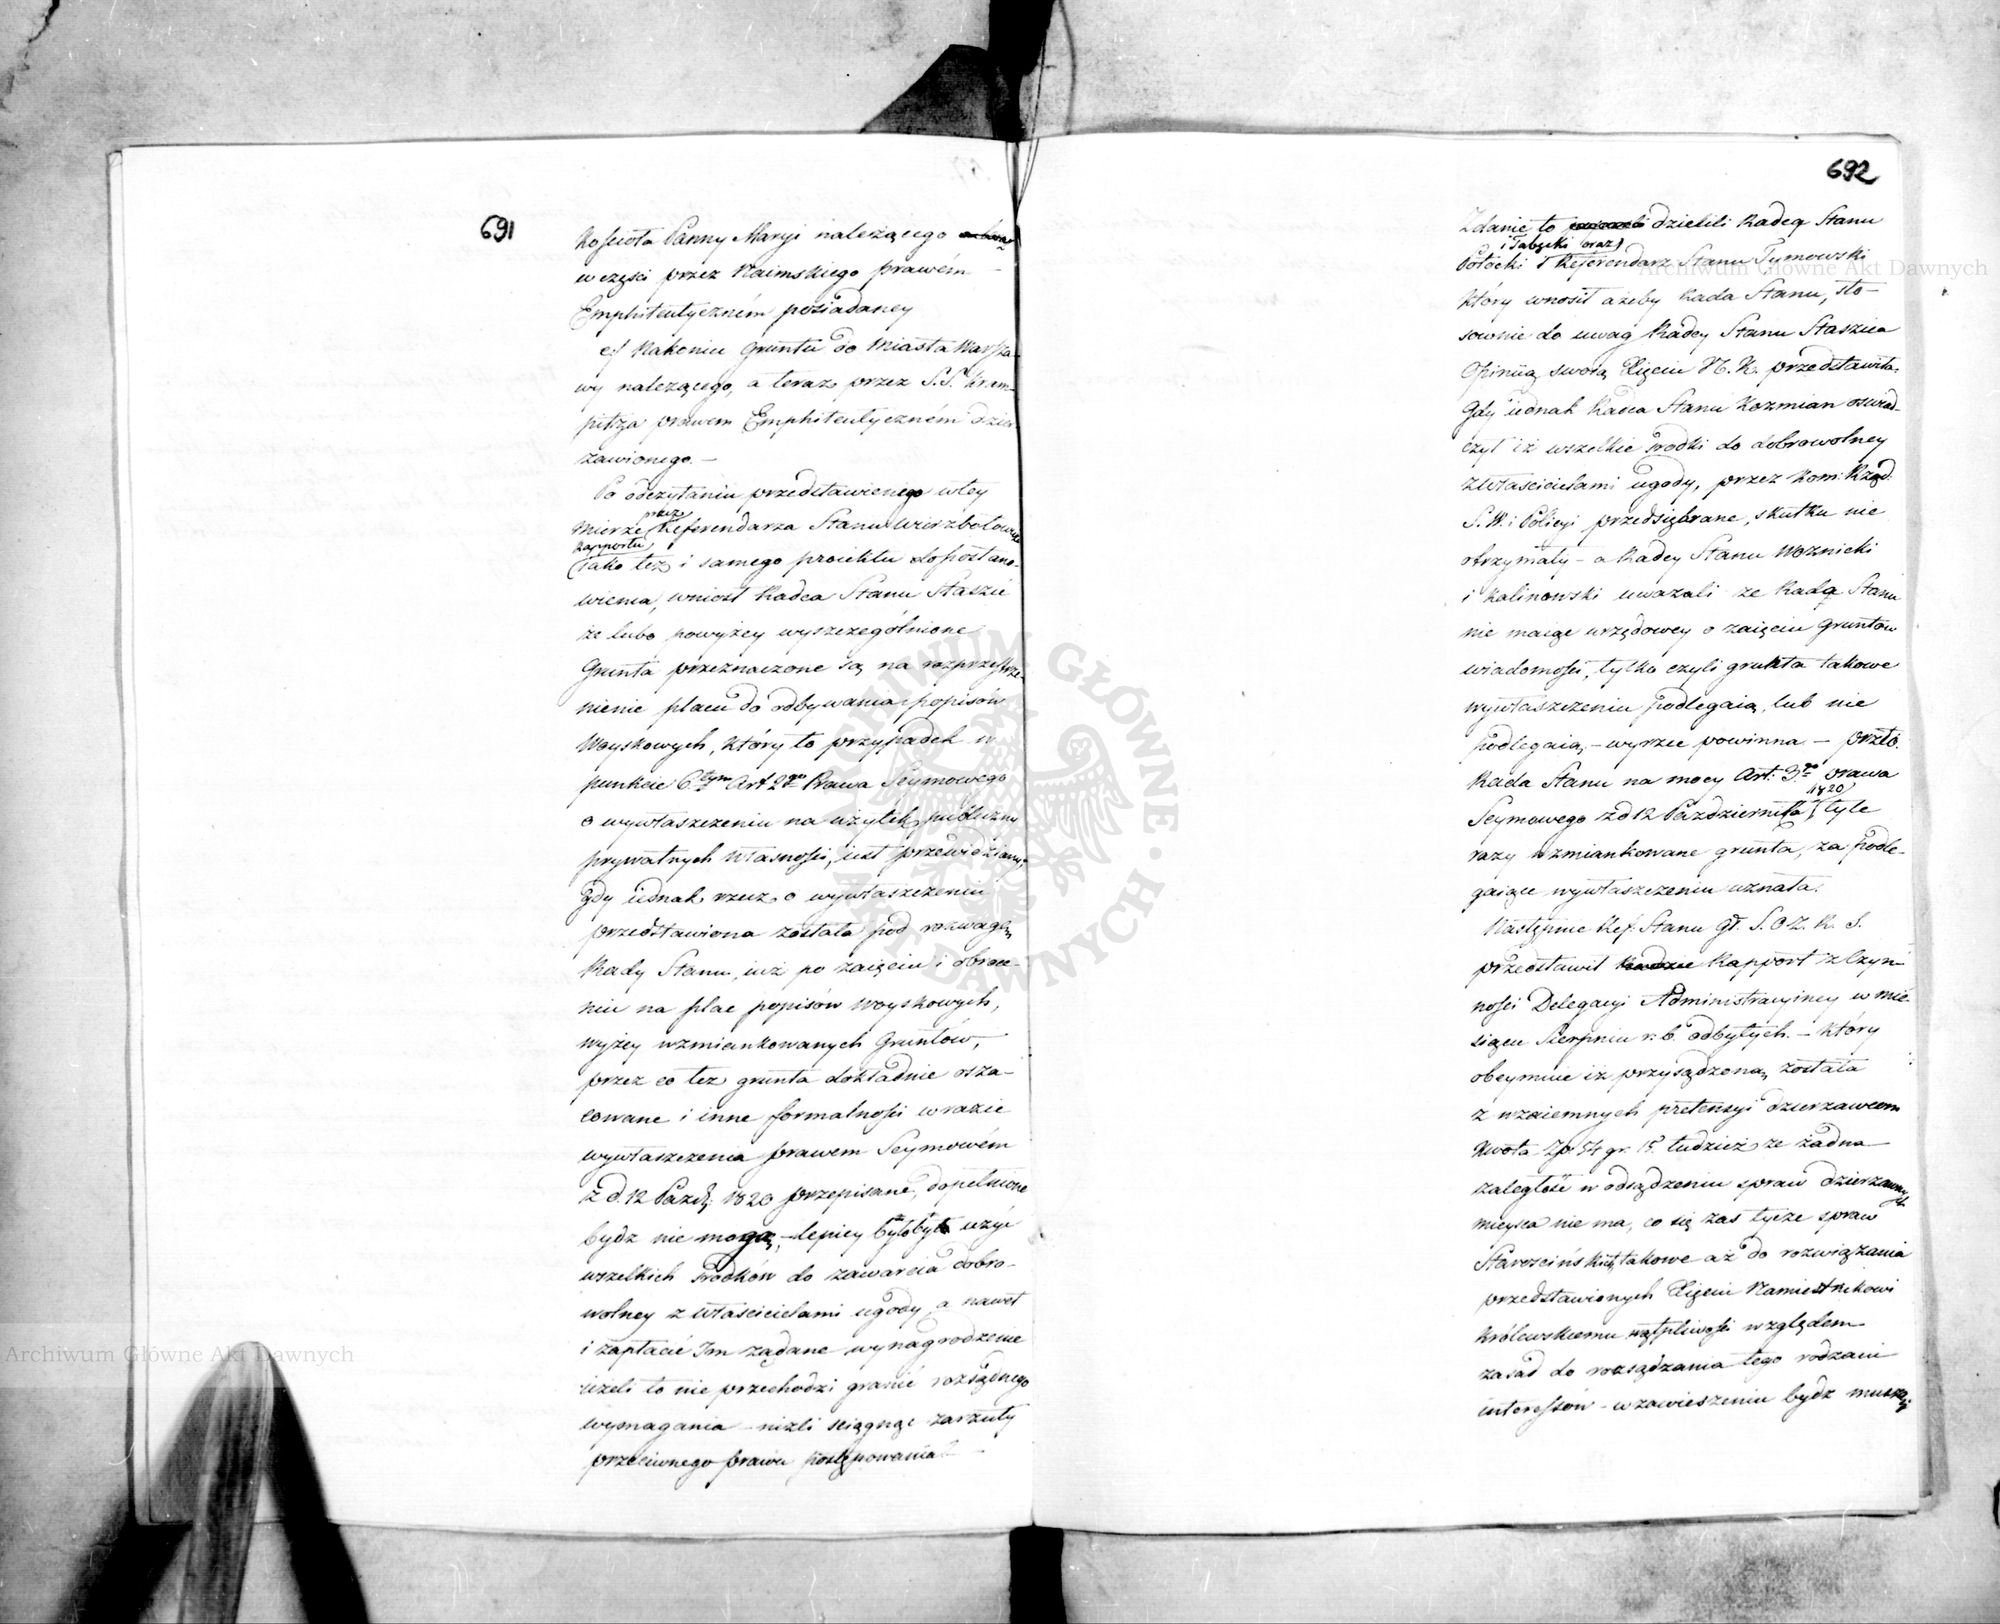 691
Kościoła Panny Maryi należącego
w części przez Naimskiego prawém
Emphiteutyczném posiadaney
e/ Nakoniec Gruntu do Miasta Warsza-
wy należącego, a teraz przez S.S. Kram-
pitza prawem Emphiteutyczném dzier-
żawionego. —
Po odczytaniu przedstawionego w tey
mierze przez Referendarza Stanu Wierzbołowicza
Rapportu
iako też i samego proiektu do postano-
wienia, wniosł Radca Stanu Staszic
że lubo powyżey wyszczególnione
Grunta przeznaczone są na rozprzestrze-
nienie placu do odbywania popisów
Woyskowych, który to przypadek w
punkcie 6tym Art 2go Prawa Seymowego
o wywłaszczeniu na użytek publiczny
prywatnych własności, iest przewidziany,
gdy iednak rzecz o wywłaszczeniu
przedstawiona została pod rozwagę
Rady Stanu, iuż po zaięciu i obróce-
niu na plac popisów woyskowych,
wyżey wzmiankowanych Gruntów,
przez co też grunta dokładnie osza-
cowane i inne formalności w razie
wywłaszczenia prawem Seymowém
z d. 12 Paźdz: 1820 przepisane, dopełnione
bydź nie mogą, — lepiey byłoby użyć
wszelkich środków do zawarcia dobro-
wolney z właścicielami ugody, a nawet
i zapłacić Im żądane wynagrodzenie
ieżeli to nie przechodzi granic rozsądnego
wymagania — niżli ściągnąć zarzuty
przeciwnego prawu postępowania. —
692
Zdanie to dzielili Radcą Stanu
i Tabęcki oraz
Potocki Referendarz Stanu Tymowski
który wnosił ażeby Rada Stanu, sto-
sownie do uwag Radcy Stanu Staszica
Opinią swoią Xięciu N. K. przedstawiła.
Gdy iednak Radca Stanu Kozmian oświad-
czył iż wszelkie środki do dobrowolney
z właścicielami ugody, przez Kom: Rząd.
S. W. i Policyi przedsiębrane, skutku nie
otrzymały — a Radcy Stanu Woznicki
i Kalinowski uważali że Rada Stanu
nie maiąc urzędowey o zaięciu Gruntów
wiadomości, tylko czyli grunta takowe
wywłaszczeniu podlegaią, lub nie
podlegaią, — wyrzec powinna — przeto
Rada Stanu na mocy Art: 3go prawa
Seymowego z d 12 Października 1820 tyle
razy wzmiankowane grunta, za podle-
gaiące wywłaszczeniu uznała.
Następnie Ref. Stanu Gł. S. O Z. R. S.
przedstawił Rapport z Czyn-
ności Delegacyi Administracyiney w mie-
siącu Sierpniu r. b. odbytych. — który
obeymuie iż przysądzoną została
z wzaiemnych pretensyi dzierżawcom
kwota Zp. 54 gr. 15. tudzież że żadna
zaległość w odsądzeniu spraw dzierżawnych
mieysca nie ma, co się zaś tycze spraw
Starościńskich takowe aż do rozwiązania
przedstawionych Xięciu Namiestnikowi
Królewskiemu wątpliwości względem
zasad do rozsądzania tego rodzaiu
interessów — w zawieszeniu bydź muszą.
Archiwum Główne Akt Dawnych
Archiwum Główne Akt Dawnych
ARCHIWUM GŁÓWNE AKT DAWNYCH